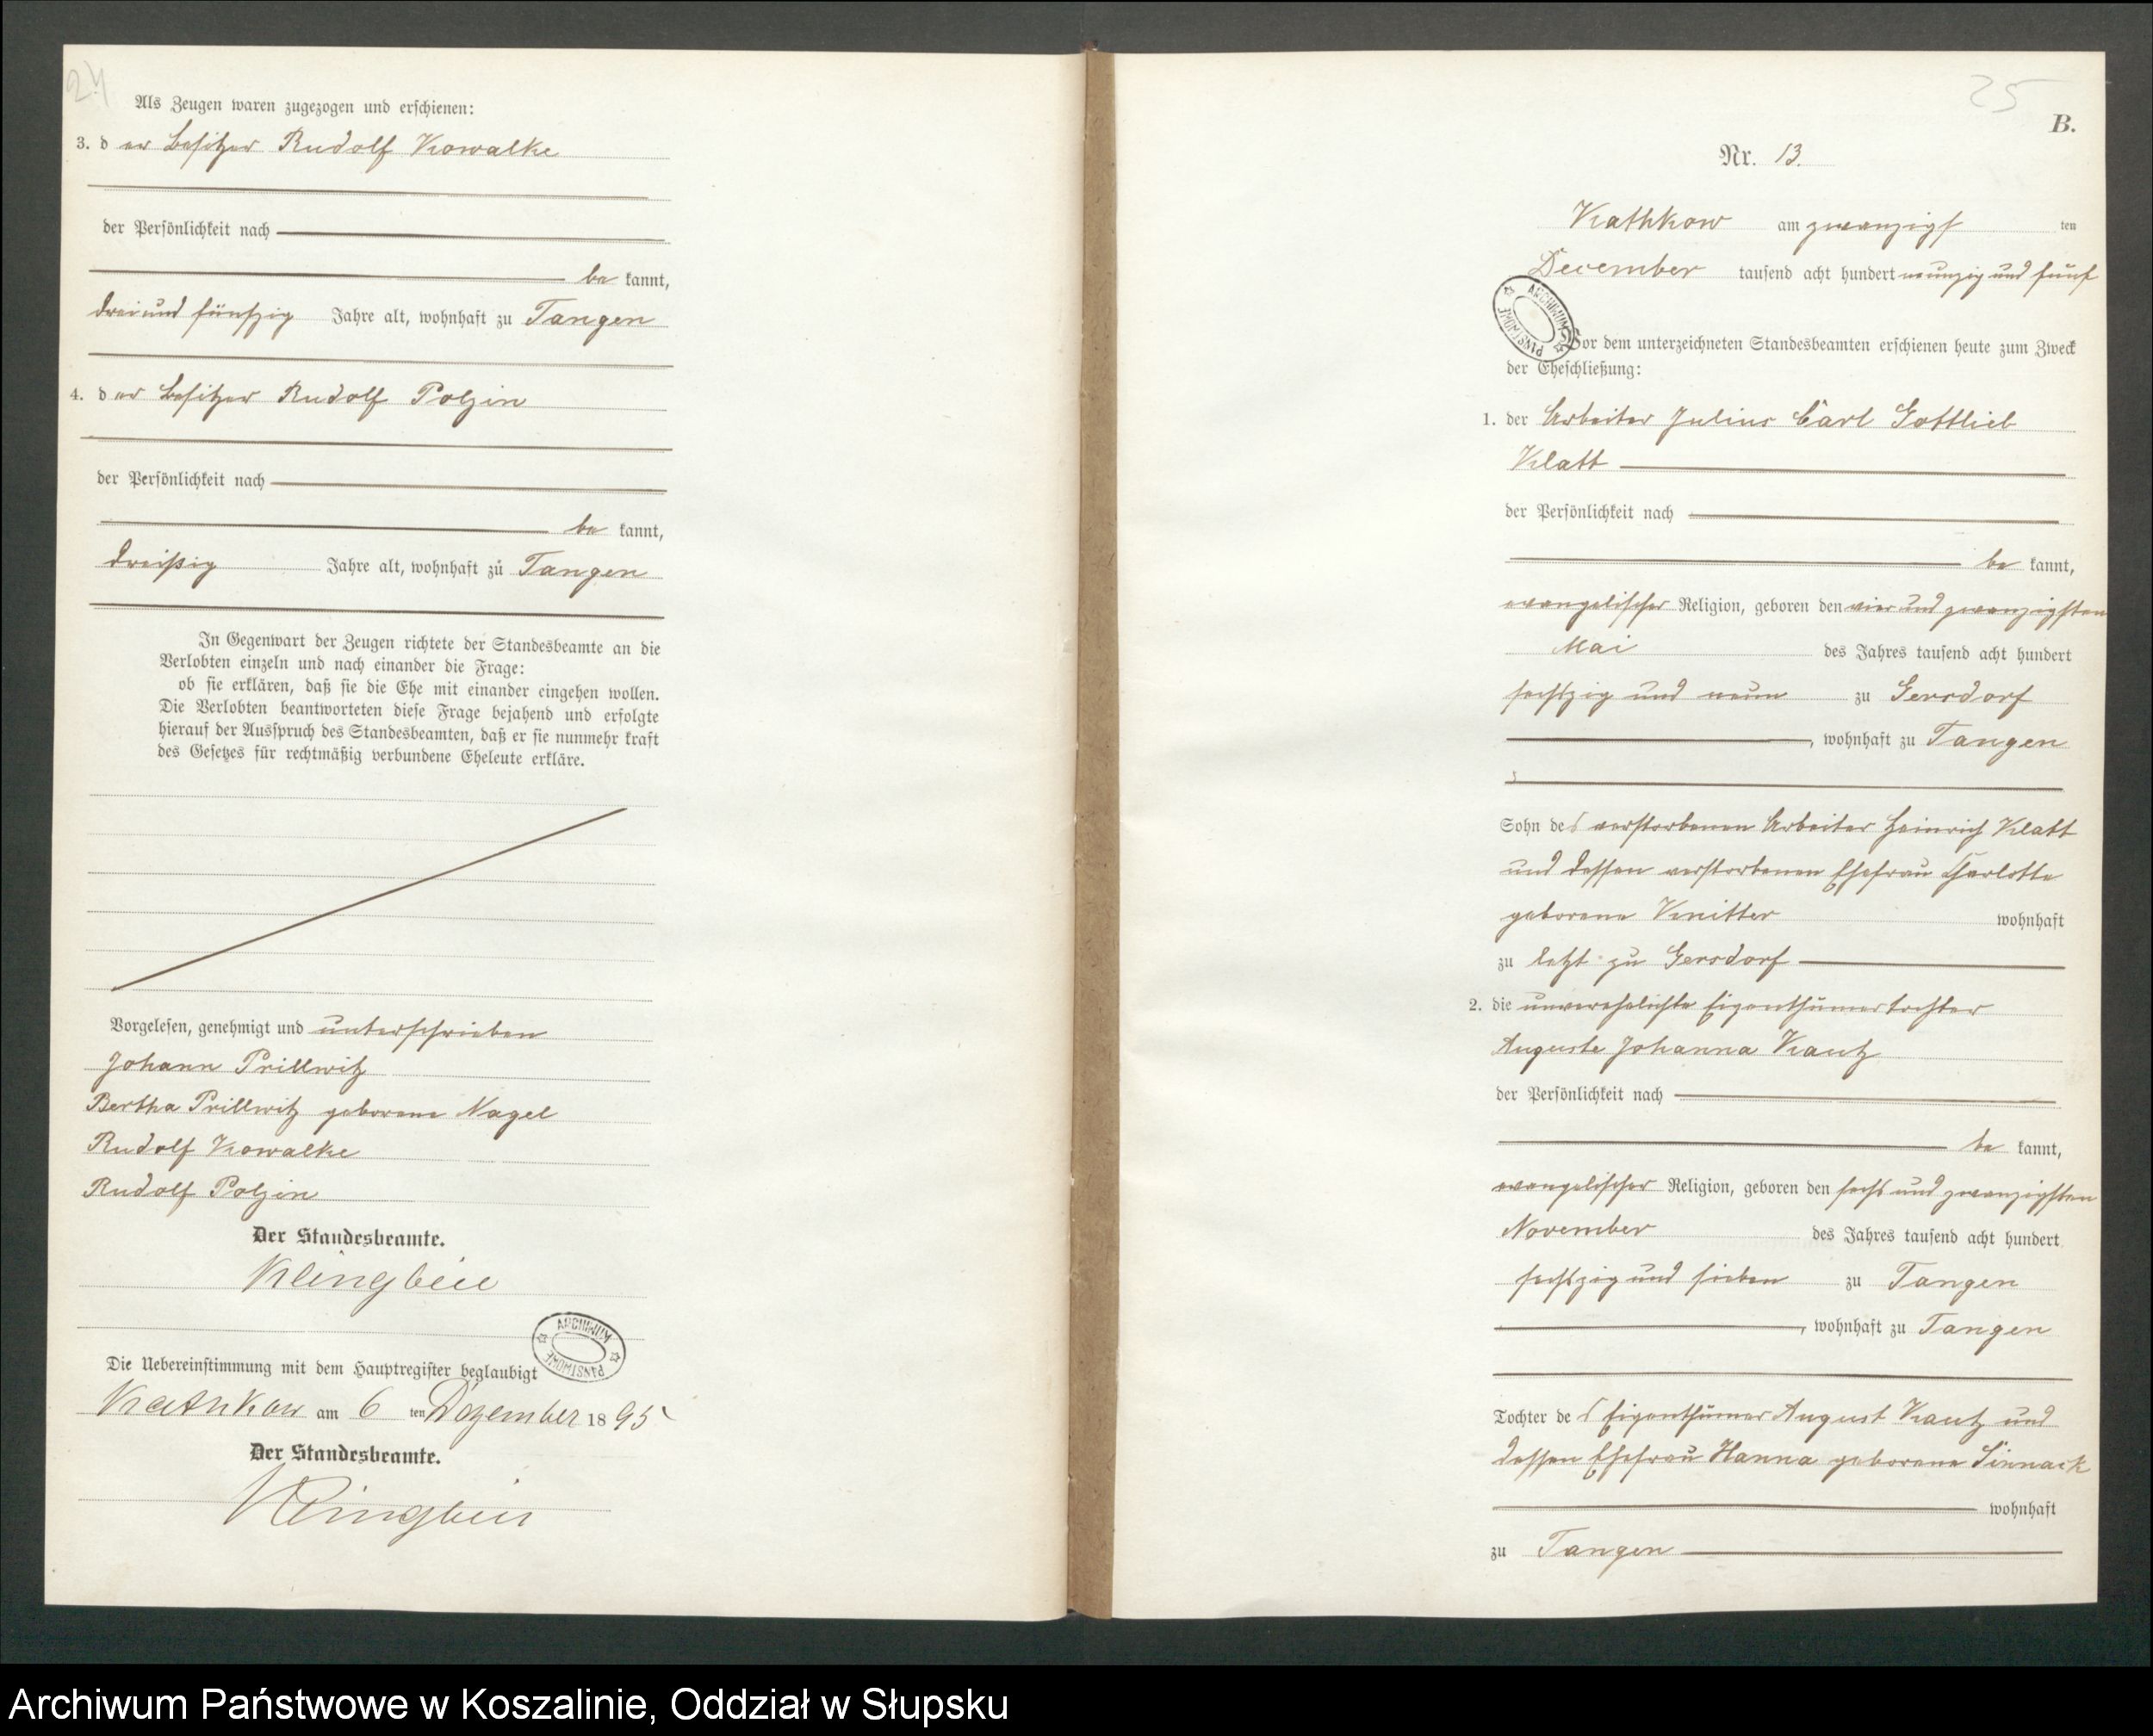 24
Als Zeugen waren zugezogen und erschienen:
3. der Besitzer Rudolf Kowalke
der Persönlichkeit nach
be kannt,
drei und fünfzig Jahre alt, wohnhaft zu Tangen
4. der Besitzer Rudolf Polzin
der Persönlichkeit nach
be kannt,
dreißig Jahre alt, wohnhaft zu Tangen
In Gegenwart der Zeugen richtete der Standesbeamte an die
Verlobten einzeln und nach einander die Frage:
ob sie erklären, daß sie die Ehe mit einander eingehen wollen.
Die Verlobten beantworteten diese Frage bejahend und erfolgte
hierauf der Ausspruch des Standesbeamten, daß er sie nunmehr kraft
des Gesetzes für rechtmäßig verbundene Eheleute erkläre.
Vorgelesen, genehmigt und unterschrieben
Johann Prillwitz
Bertha Prillwitz geborene Nagel
Rudolf Kowalke
Rudolf Polzin
Der Standesbeamte.
Klingbeil
ARCHIWUM PAŃSTWOWE
Die Uebereinstimmung mit dem Hauptregister beglaubigt
Kathkow am 6 ten Dezember 1895
Der Standesbeamte.
Klingbeil
25
B.
Nr. 13.
Kathkow am zwanzigs ten
December tausend acht hundert neunzig und fünf
ARCHIWUM PAŃSTWOWE
Vor dem unterzeichneten Standesbeamten erschienen heute zum Zweck
der Eheschließung:
1. der Arbeiter Julius Carl Gottlieb
Klatt
der Persönlichkeit nach
be kannt,
evangelischer Religion, geboren den vier und zwanzigsten
Mai des Jahres tausend acht hundert
sechszig und neun zu Gersdorf
, wohnhaft zu Tangen
Sohn des verstorbenen Arbeiter Heinrich Klatt
und dessen verstorbenen Ehefrau Charlotte
geborene Knitter wohnhaft
zu letzt zu Gersdorf
2. die unverehelichte Eigenthümertochter
Auguste Johanna Kautz
der Persönlichkeit nach
be kannt,
evangelischer Religion, geboren den sechs und zwanzigsten
November des Jahres tausend acht hundert
sechszig und sieben zu Tangen
, wohnhaft zu Tangen
Tochter des Eigenthümer August Kautz und
dessen Ehefrau Hanna geborene Sinnack
wohnhaft
zu Tangen
Archiwum Państwowe w Koszalinie, Oddział w Słupsku